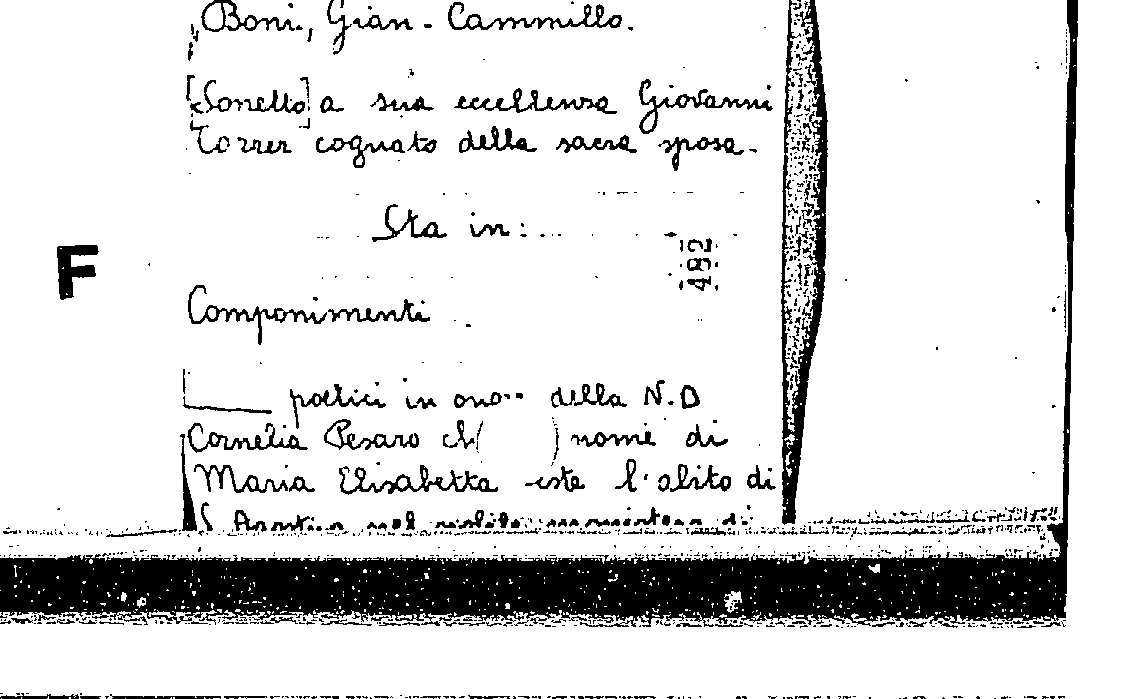 Boni, Gian-Cammillo.
[Sonetto] a sua eccellenza Giovanni
Correr cognato della sacra sposa.
Sta in:
482
F
Componimenti
poetici in della N.D
Cornelia Pesaro ch( ) nome di
Maria Elisabetta l'abito di
S.